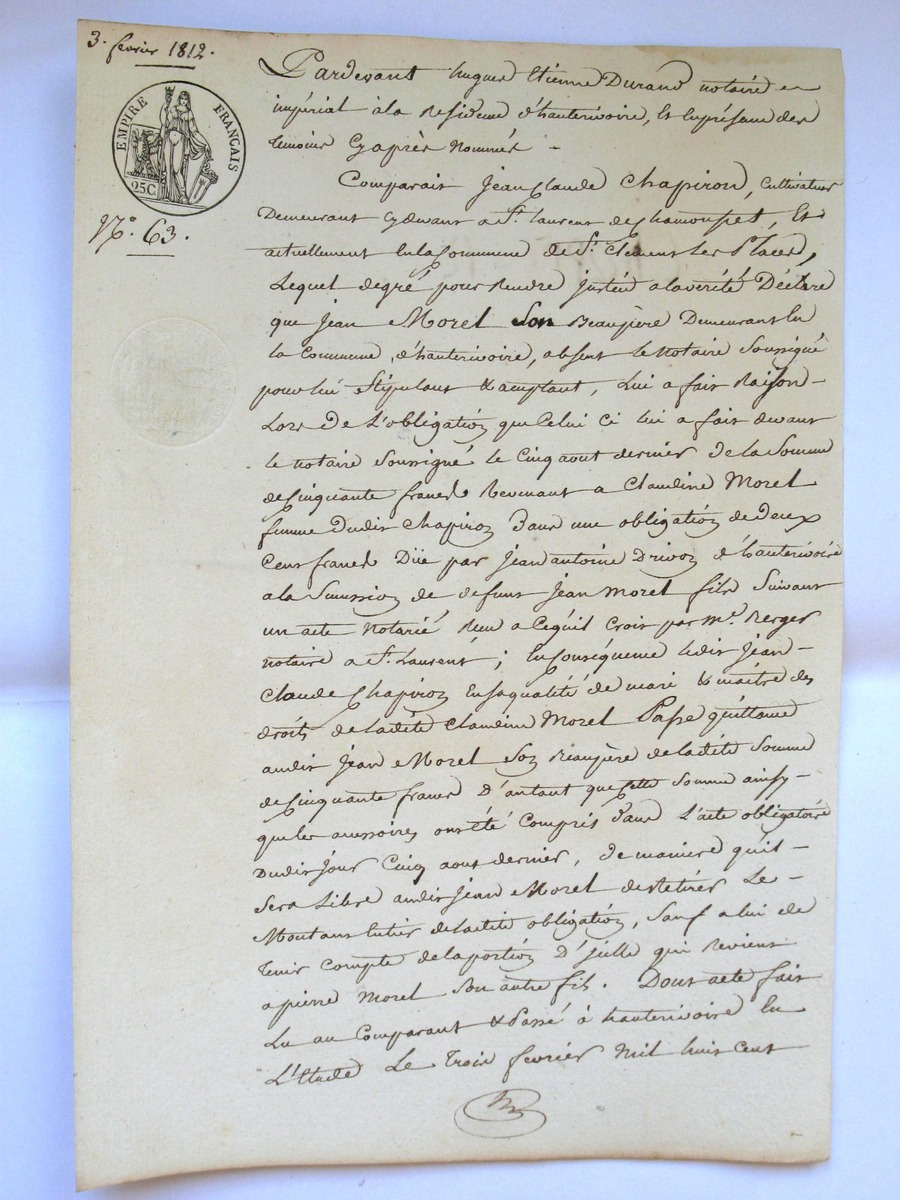 3. fevrier 1812.
EMPIRE FRANÇAIS
25C.
N.º 63.
Pardevant hugues Etienne Durand notaire
impérial à la Residence d'hauterivoire, Et En présence des
temoins Cyaprès Nommés -
Comparait Jean Claude Chapiron, Cultivateur
Demeurant cydevant a St. laurent de Chamousset, Et
actuellement En la Commune de St. Clement Les Places,
Lequel de gré pour Rendre justice a la verité Déclare
que Jean Morel Son Beaupère Demeurant En
la Commune d'hauterivoire, absent le Notaire Soussigné
pour lui Stipulant & acceptant, Lui a fait Raison -
Lors de L'obligation que Celui ci lui a fait devant
le Notaire Soussigné le Cinq aout dernier de la Somme
de Cinquante francs Revenant a Claudine Morel
femme dudit Chapiron dans une obligation de deux
Cent francs Düe par Jean antoine Drivon d'hauterivoire
a la Succession de defunt Jean Morel fils Suivant
un acte Notarié Reçu a Cequil Croit par Me. Berger
notaire a St. Laurent ; En Conséquence ledit Jean -
Claude Chapiron En Saqualité de mari & maitre des
droits de ladite Claudine Morel Passe quittance
audit Jean Morel Son Beaupère de ladite Somme
de Cinquante francs D'autant que Cette Somme ainsy -
que les accessoires ont été Compris dans L'acte obligatoire
Dudit Jour Cinq aout dernier, de maniere qu'il -
Sera Libre audit Jean Morel de Retirer Le -
Montant Entier de ladite obligation, Sauf a lui de
Tenir Compte de la portion D'icelle qui Revient
a pierre Morel Son autre fils. Dont acte fait
Lu au Comparant & Passé à hauterivoire En
L'Etude Le Trois fevrier Mil huit Cent